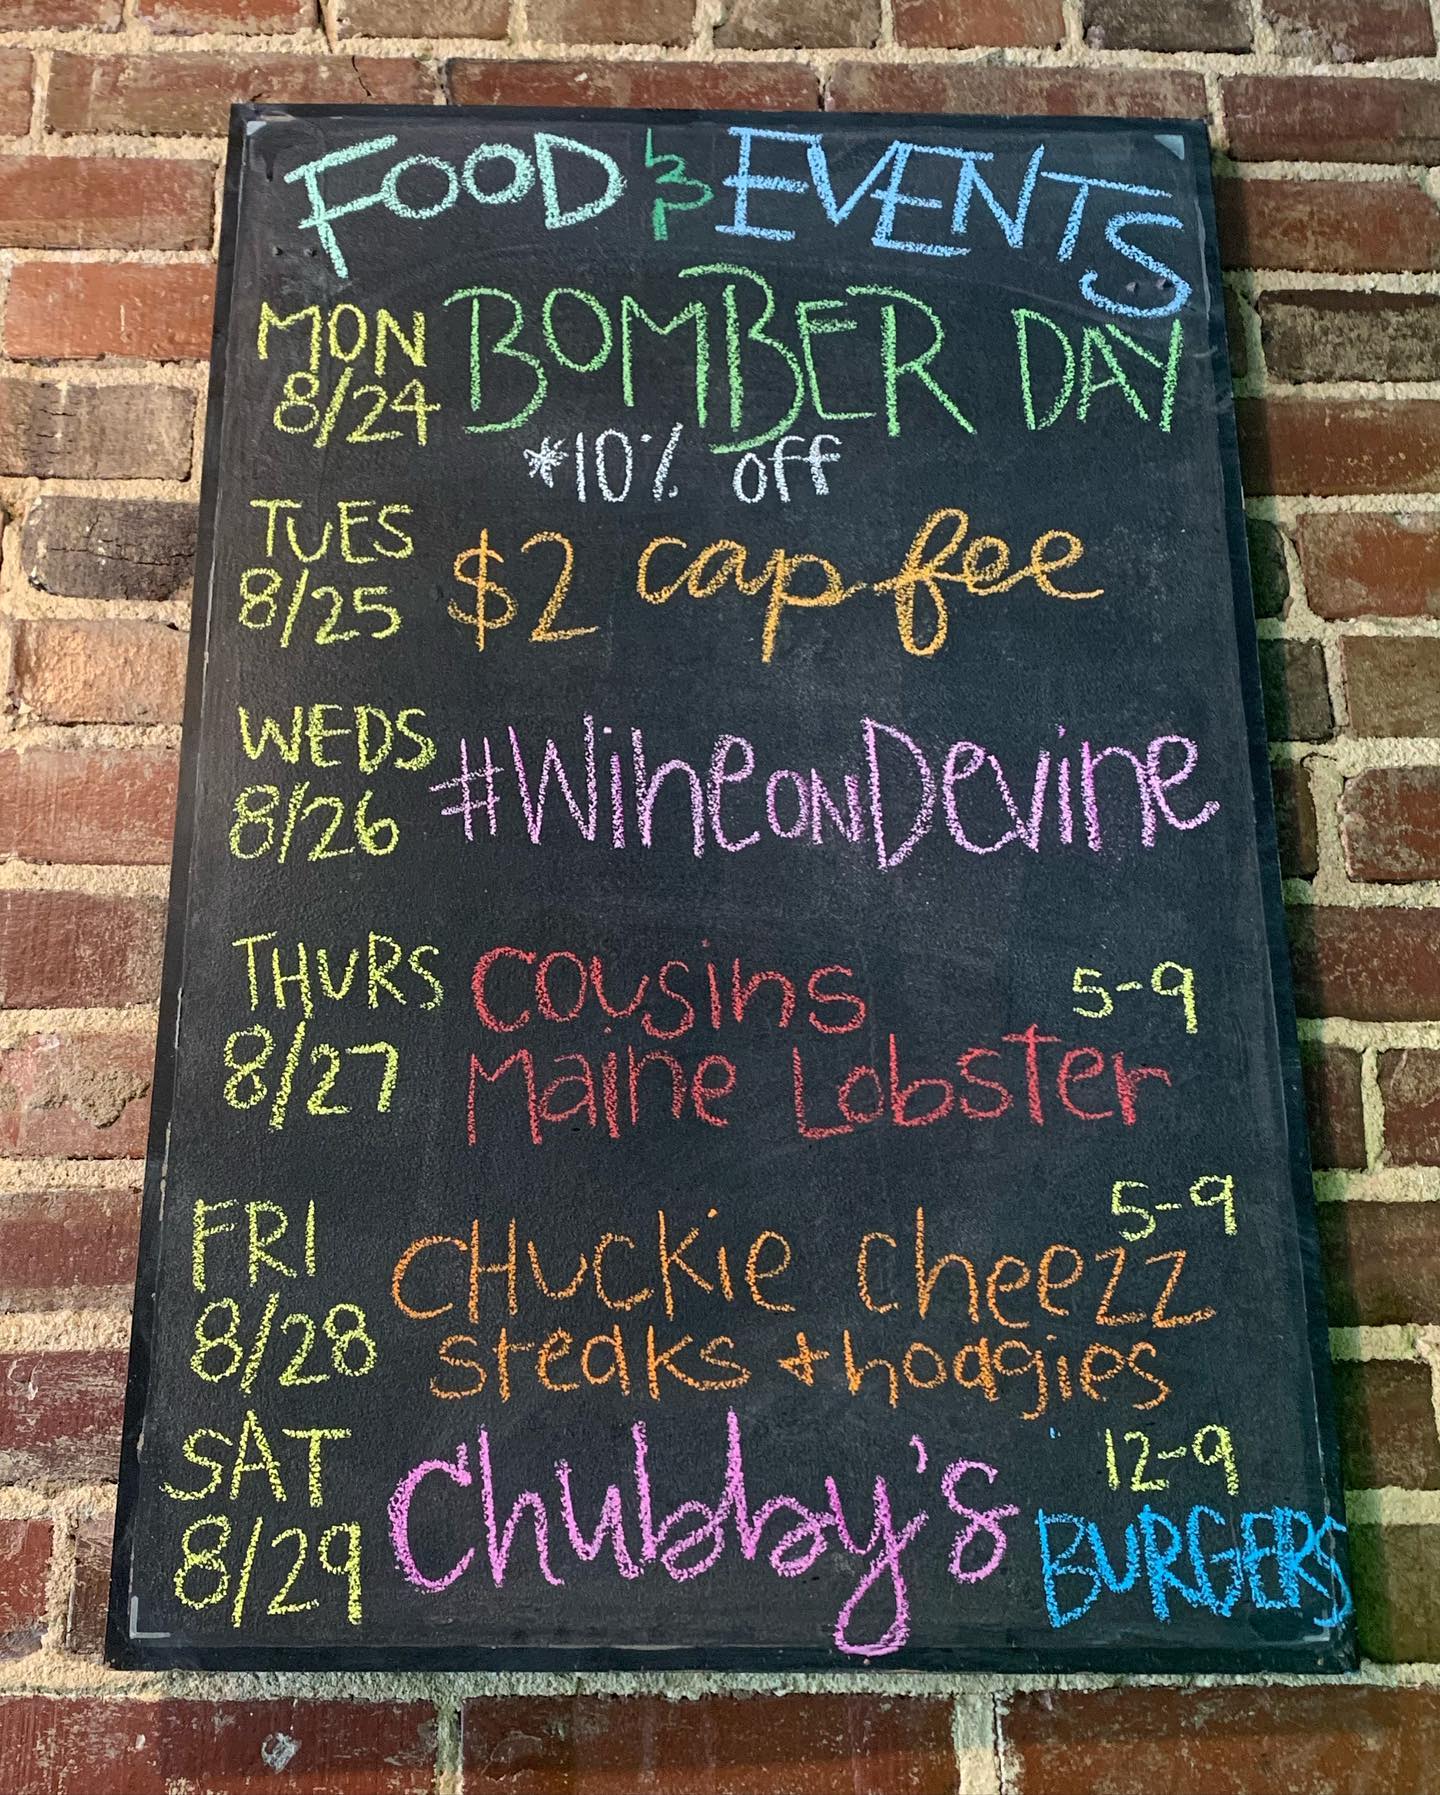 FOOD & EVENTS
MON 8/24 BOMBER DAY
*10% off
TUES 8/25 $2 cap fee
WEDS 8/26 #WineonDevine
THURS 8/27 Cousins 5-9
Maine Lobster
FRI 8/28 CHuckie Cheezz 5-9
steaks + hoagies
SAT 8/29 Chubby's 12-9
BURGERS